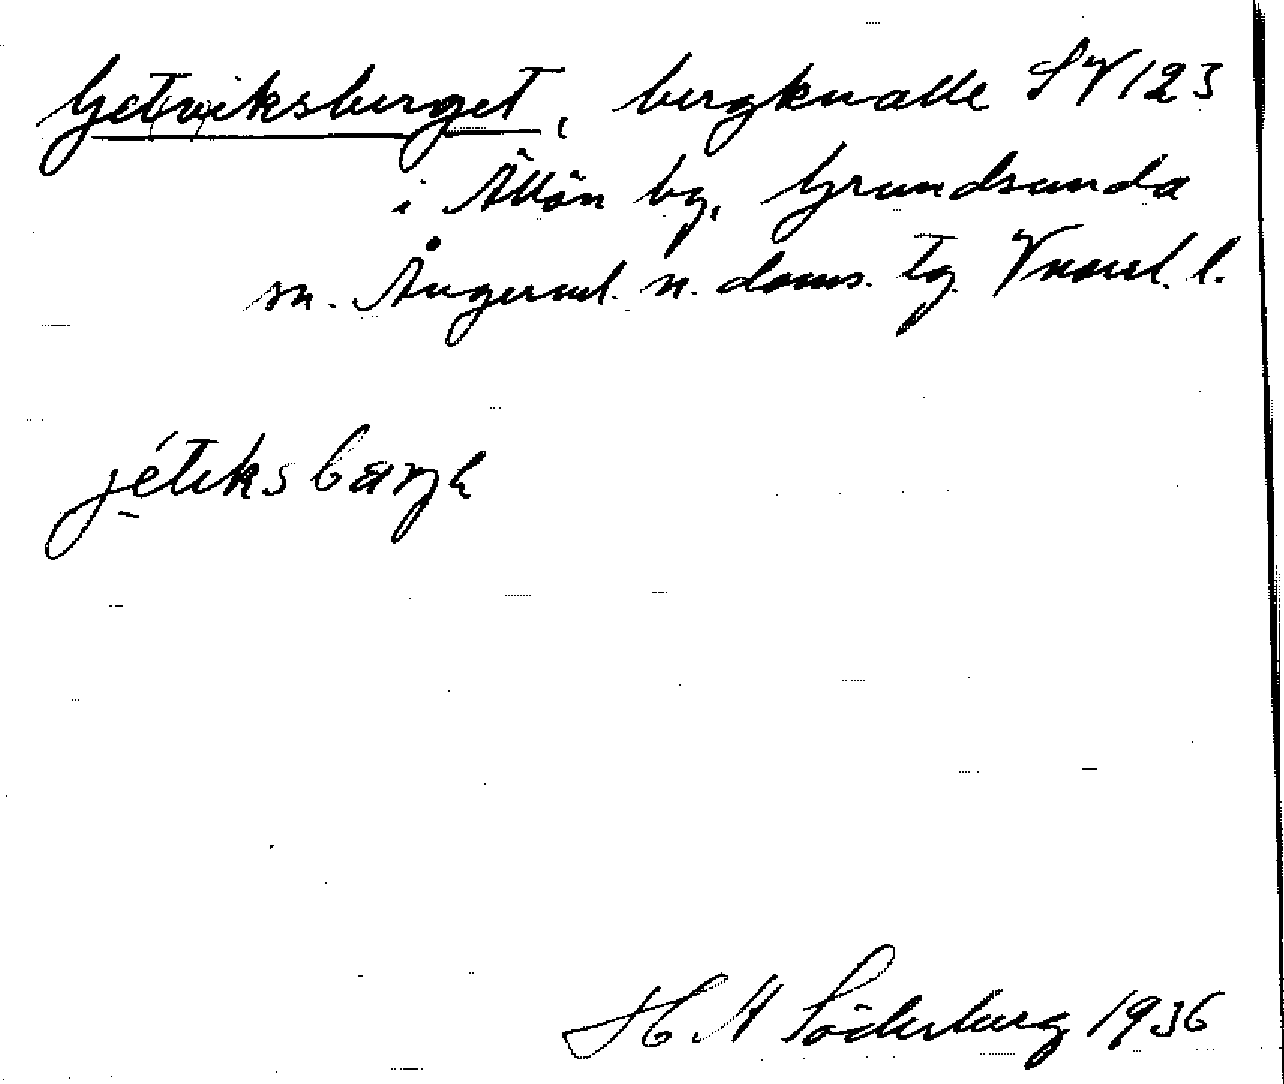 Getviksberget, bergknalle SV 123
i Ällön by, Grundsunda
sn. Ångerml. n. doms. tg. Vnorrl. l.
jétiksbærjɛ
H M Söderberg 1936